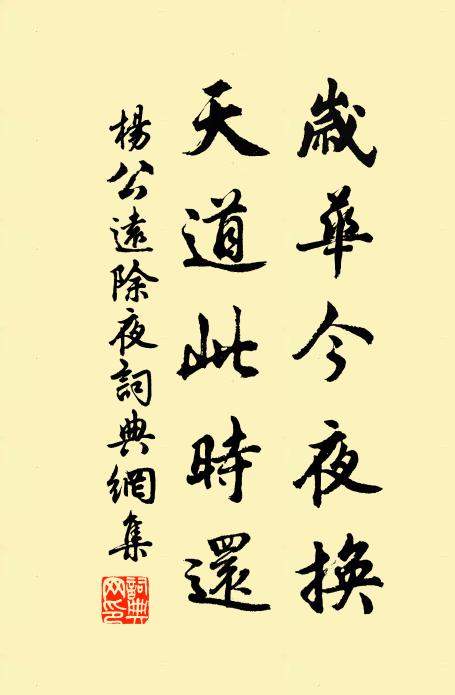 歲華今夜換
天道此時還
楊公遠除夜詞典網集
詞典網印